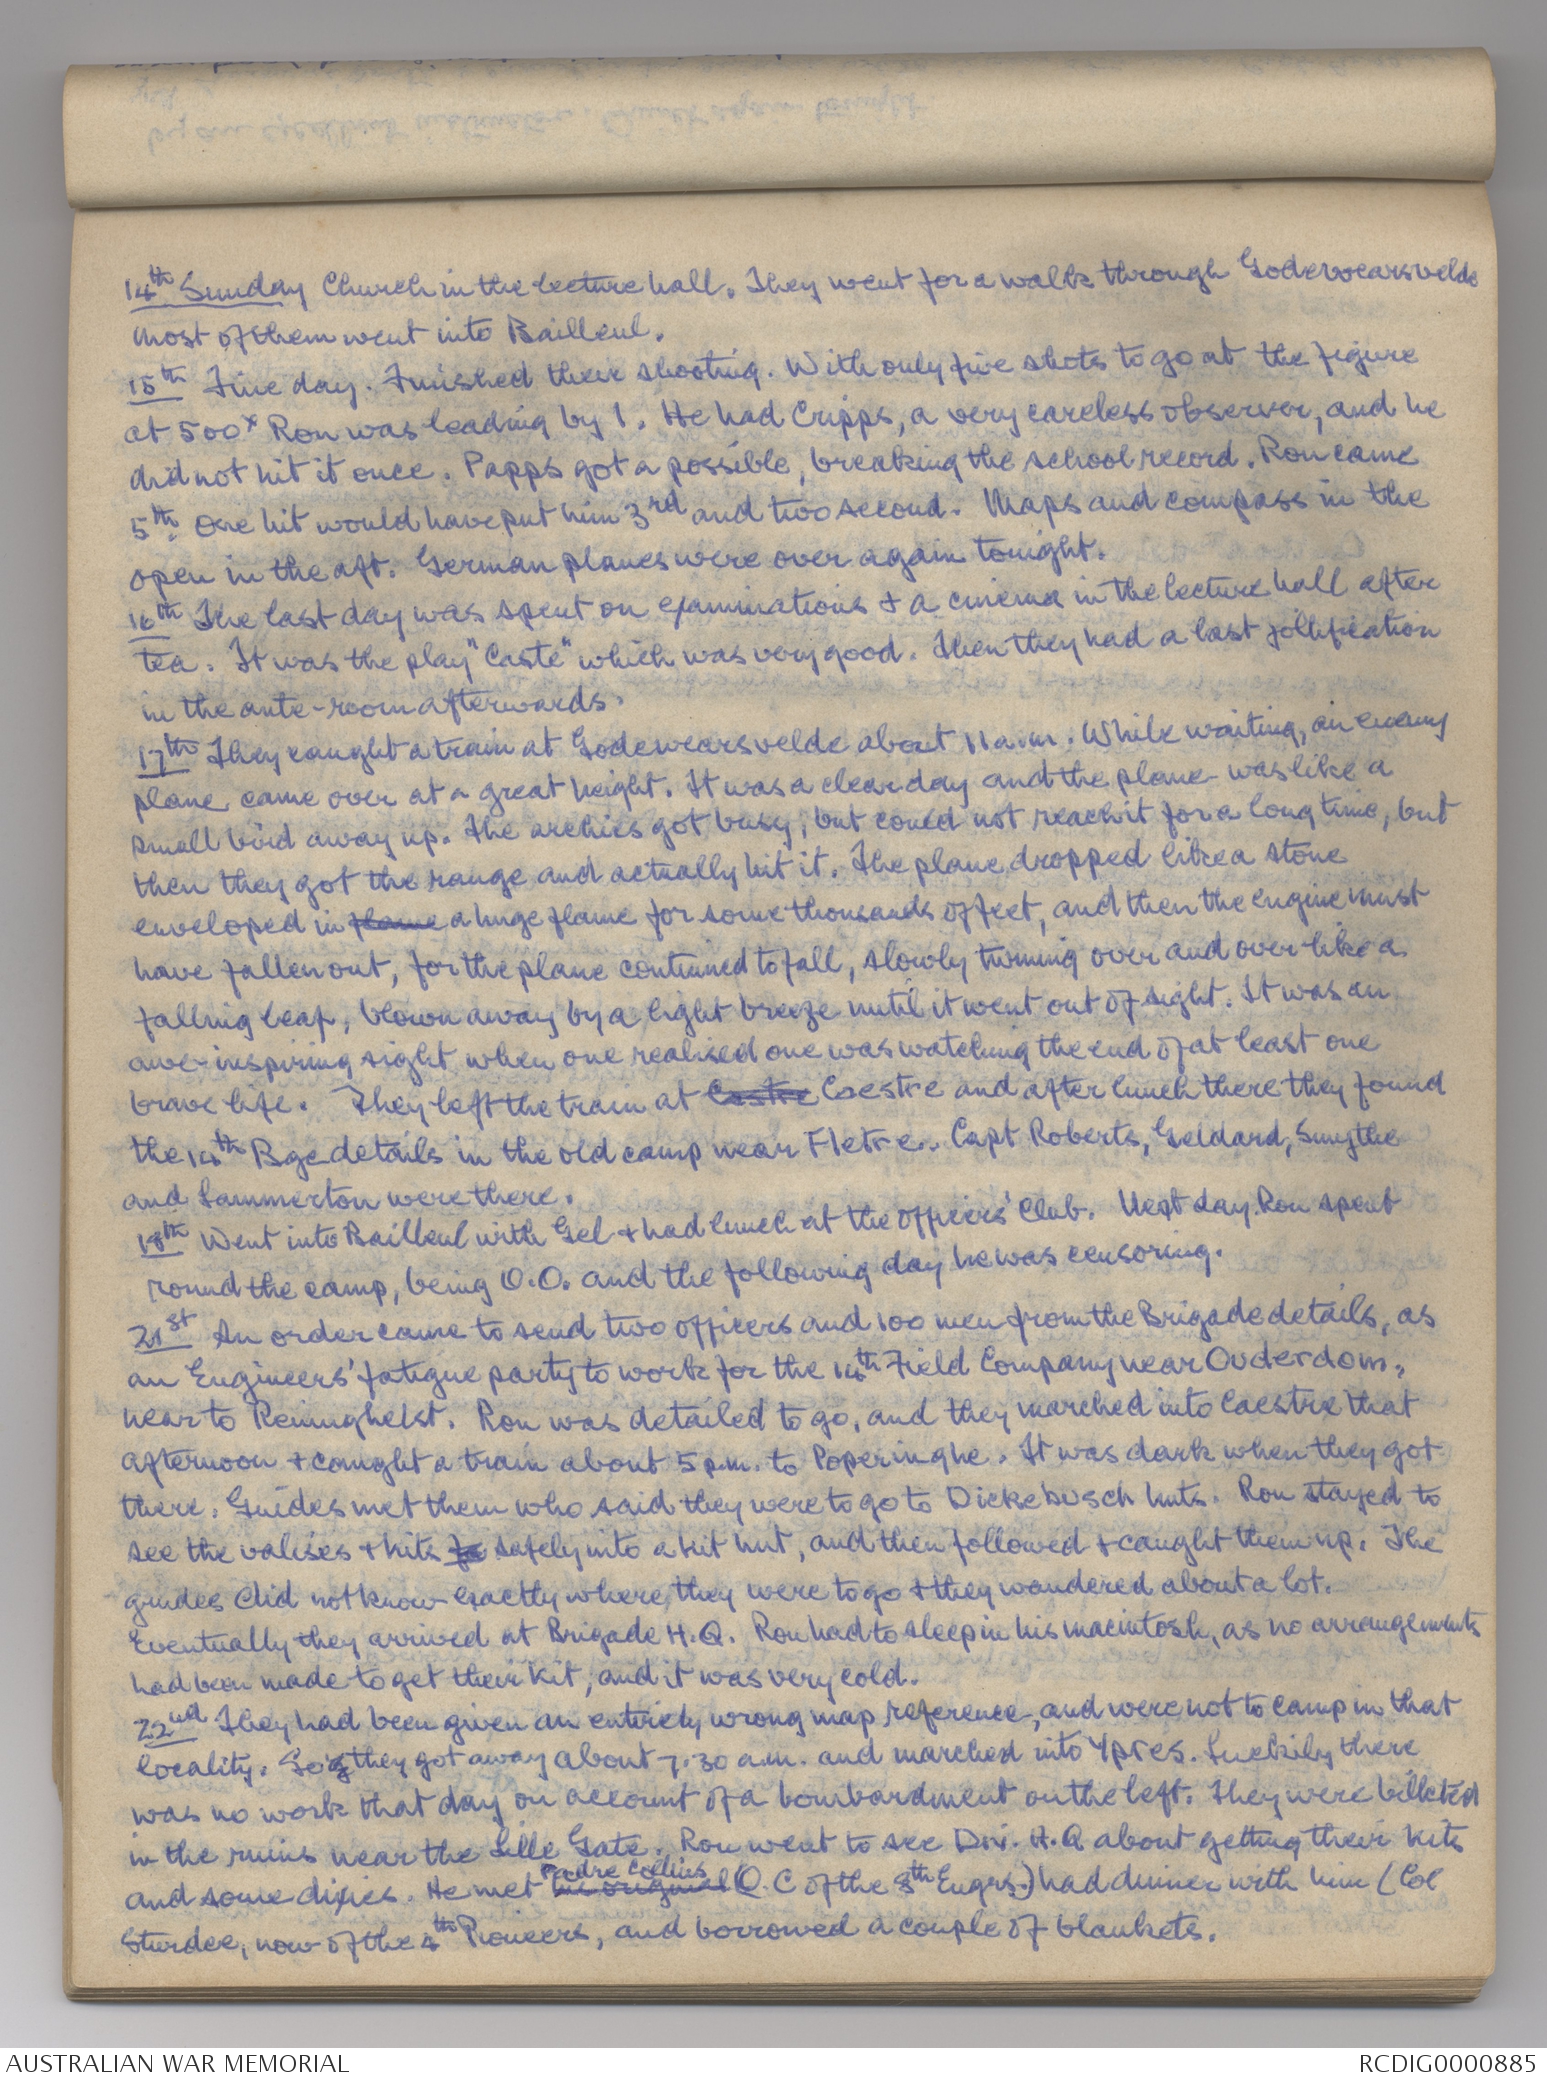 14th Sunday Church in the lecture hall. They went for a walk through Godewearsvelde
most of them went into Bailleul.
15th Fine day. Finished their shooting. With only five shots to go at the figure
at 500x Ron was leading by 1. He had Cripps, a very careless observer, and he
did not hit it once. Papps got a possible, breaking the school record. Ron came
5th. One hit would have put him 3rd and two second. Maps and compass in the
open in the aft. German planes were over again tonight.
16th The last day was spent on examinations & a cinema in the lecture hall after
tea. It was the play "Caste" which was very good. Then they had a last jollification
in the ante-room afterwards.
17th They caught a train at Godewearsvelde about 11 a.m. While waiting, an enemy
plane came over at a great height. It was a clear day and the plane was like a
small bird away up. The archies got busy, but could not reach it for a long time, but
then they got the range and actually hit it. The plane dropped like a stone
enveloped in flame a huge flame for some thousands of feet, and then the engine must
have fallen out, for the plane continued to fall, slowly turning over and over like a
falling leaf, blown away by a light breeze until it went out of sight. It was an
awe-inspiring sight when one realised one was watching the end of at least one
brave life. They left the train at Castre Caestre and after lunch there they found
the 14th Bge details in the old camp near Fletre.. Capt Roberts, Geldard, Smythe
and Lammerton were there.
18th Went into Bailleul with Gel & had lunch at the Officers' Club. Next day Ron spent
round the camp, being O.O. and the following day he was censoring.
21st An order came to send two officers and 100 men from the Brigade details, as
an Engineers' fatigue party to work for the 14th Field Company near Ouderdom,
near to Reninghelst. Ron was detailed to go, and they marched into Caestre that
afternoon & caught a train about 5 p.m. to Poperinghe. It was dark when they got
there. Guides met them who said they were to go to Dickebusch huts. Ron stayed to
see the valises & kits safely into a kit hut, and then followed & caught them up. The
guides did not know exactly where they were to go & they wandered about a lot.
Eventually they arrived at Brigade H.Q. Ron had to sleep in his macintosh, as no arrangements
had been made to get their kit, and it was very cold.
22nd They had been given an entirely wrong map reference, and were not to camp in that
locality. So they got away about 7.30 a.m. and marched into Ypres. Luckily there
was no work that day on account of a bombardment on the left. They were billeted
in the ruins near the Lille Gate. Ron went to see Div. H.Q about getting their kits
and some dixies. He met his original Padre Collins O.C of the 8th Engrs.) had dinner with him (Col
Sturdee, now of the 4th Pioneers, and borrowed a couple of blankets.
AUSTRALIAN WAR MEMORIAL
RCDIG0000885